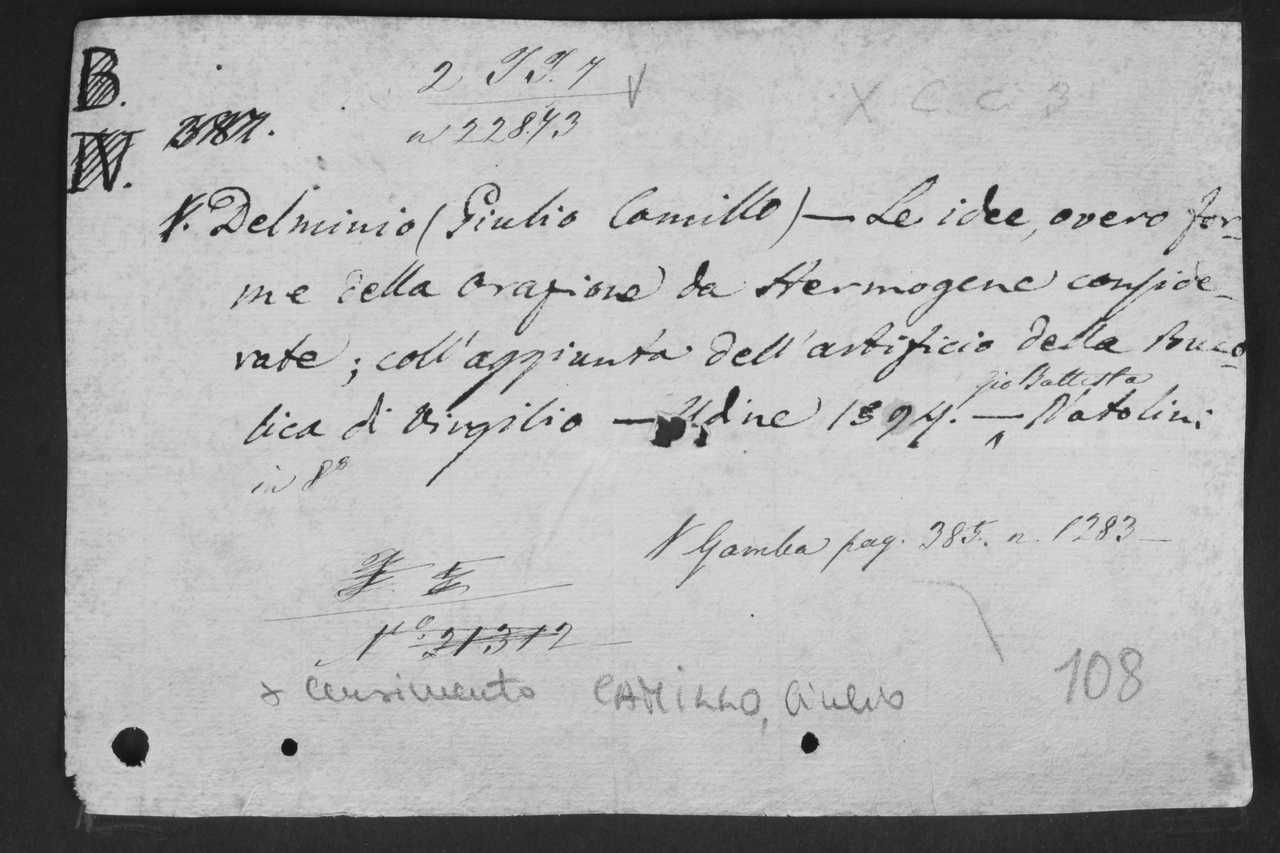 B.
IV.
387.
2 I I. 7
n 22843
X C C. 3
N. Delminio (Giulio Camillo) — Le idee, overo for-
me della orazione da Hermogene conside-
rate; coll'aggiunta dell'artificio della Buco
lica di Virgilio — Udine 1594. — Gio Battista Natolini
in 8°
N Gamba pag. 385. n. 1283 —
N.° 21312
x Censimento CAMILLO, Giulio
108